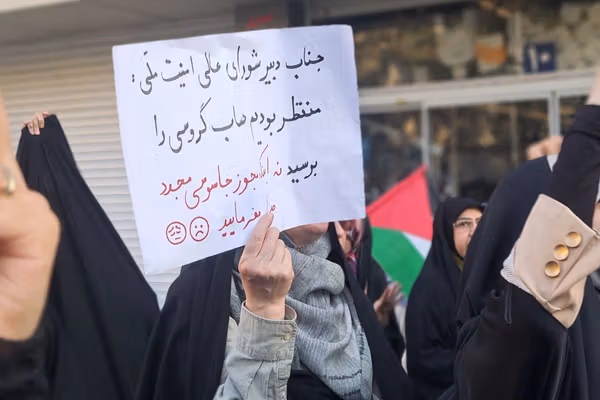 جناب دبیر شورای عالی امنیت ملّی؛
منتظر بودیم حساب گروسی را
برسید نه اینکه مجوز جاسوسی مجدد
بفرمایید